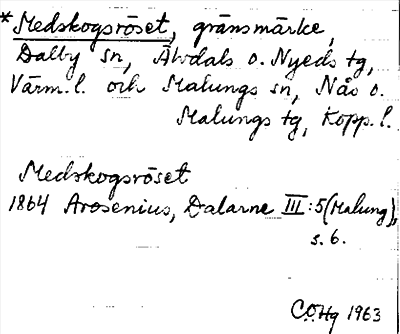 *Medskogsröset, gränsmärke,
Dalby sn, Älvdals o. Nyeds tg,
Värm. l. och Malungs sn, Nås o.
Malungs tg, Kopp. l.
Medskogsröset
1864 Arosenius, Dalarne III:5 (Malung),
s. 6.
C.Ö.Hg 1963